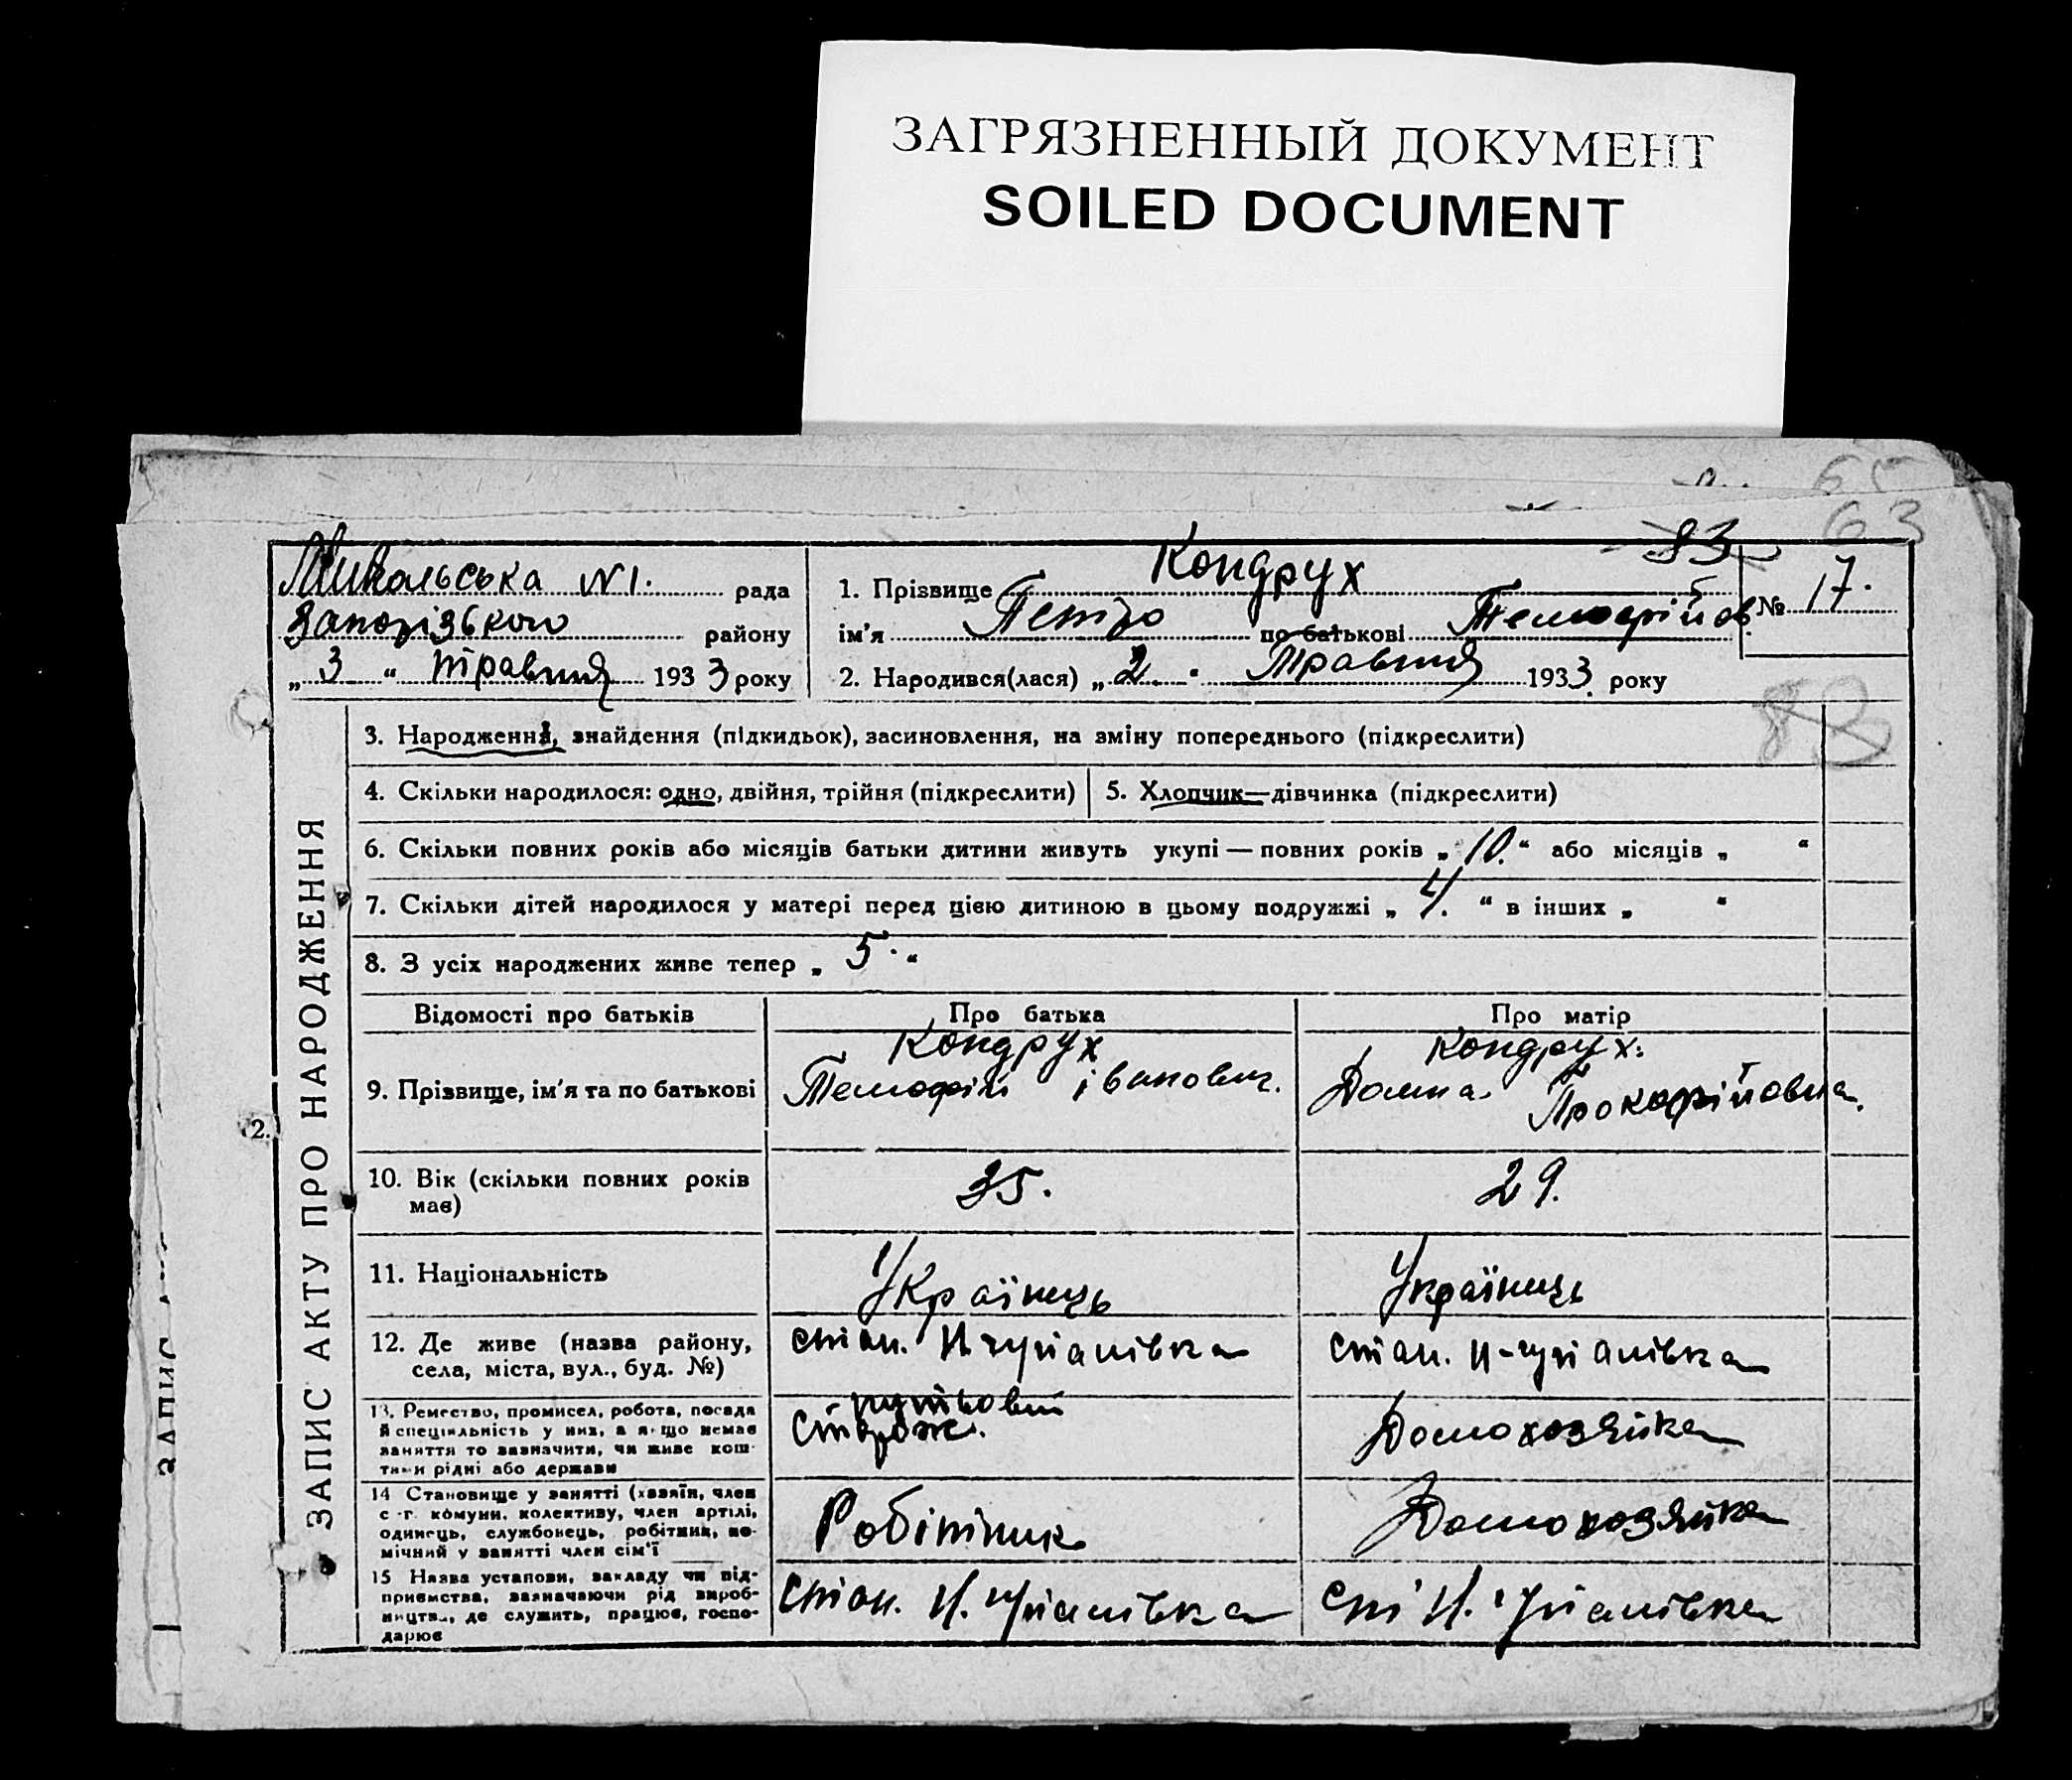 ЗАГРЯЗНЕННЫЙ ДОКУМЕНТ
SOILED DOCUMENT
65
63
83
Микольська №1. рада
Запорізького району
„3“ травня 1933 року
1. Прізвище Кондрух
ім'я Петро по батькові Темофійов.
2. Народився(лася) „2“ Травня 1933 року
№ 17.
83
ЗАПИС АКТУ ПРО НАРОДЖЕННЯ
3. Народження, знайдення (підкидьок), засиновлення, на зміну попереднього (підкреслити)
4. Скільки народилося: одно, двійня, трійня (підкреслити)
5. Хлопчик—дівчинка (підкреслити)
6. Скільки повних років або місяців батьки дитини живуть укупі — повних років „10.“ або місяців „ “
7. Скільки дітей народилося у матері перед цією дитиною в цьому подружжі „4.“ в інших „ “
8. З усіх народжених живе тепер „5.“
Відомості про батьків
Про батька
Про матір
9. Прізвище, ім'я та по батькові
Кондрух
Темофій іванович.
Кондрух.
Домна Прокофійовна.
2.
10. Вік (скільки повних років
має)
35.
29.
11. Національність
Українець
Українець
12. Де живе (назва району,
села, міста, вул., буд. №)
стан.
стан.
13. Ремество, промисел, робота, посада
й спеціяльність у них, а якщо немає
заняття то зазначити, чи живе кош-
тами рідні або держави
путьовий
Сторож.
Домохозяйка
14 Становище у занятті (хазяїн, член
с.-г. комуни, колективу, член артілі,
одинець, службовець, робітник, по-
мічний у занятті член сім'ї
Робітник
Домохозяйка
15 Назва установи, закладу чи під-
приємства, зазначаючи рід вироб-
ництва, де служить, працює, госпо-
дарює
стан.
ст.